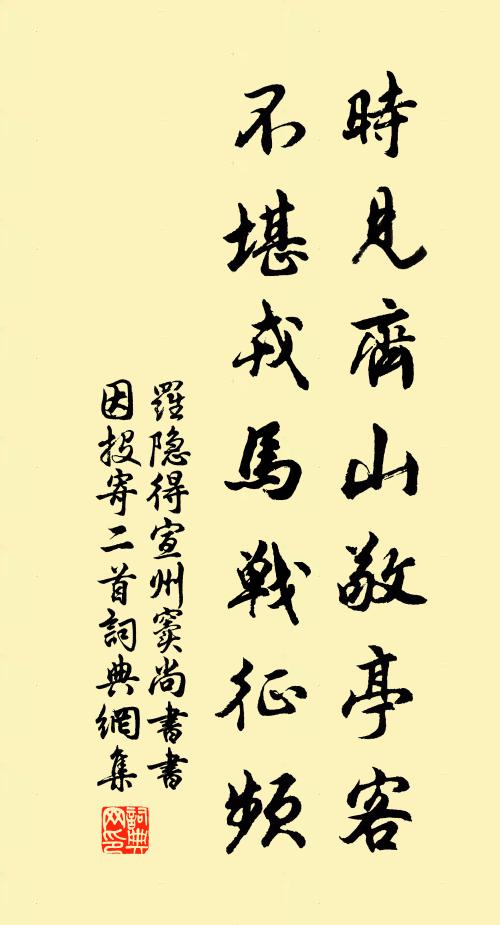 時見齊山敬亭客
不堪戎馬戰征頻
羅隐得宣州竇尚書書
因投寄二首詞典網集
詞典
网印